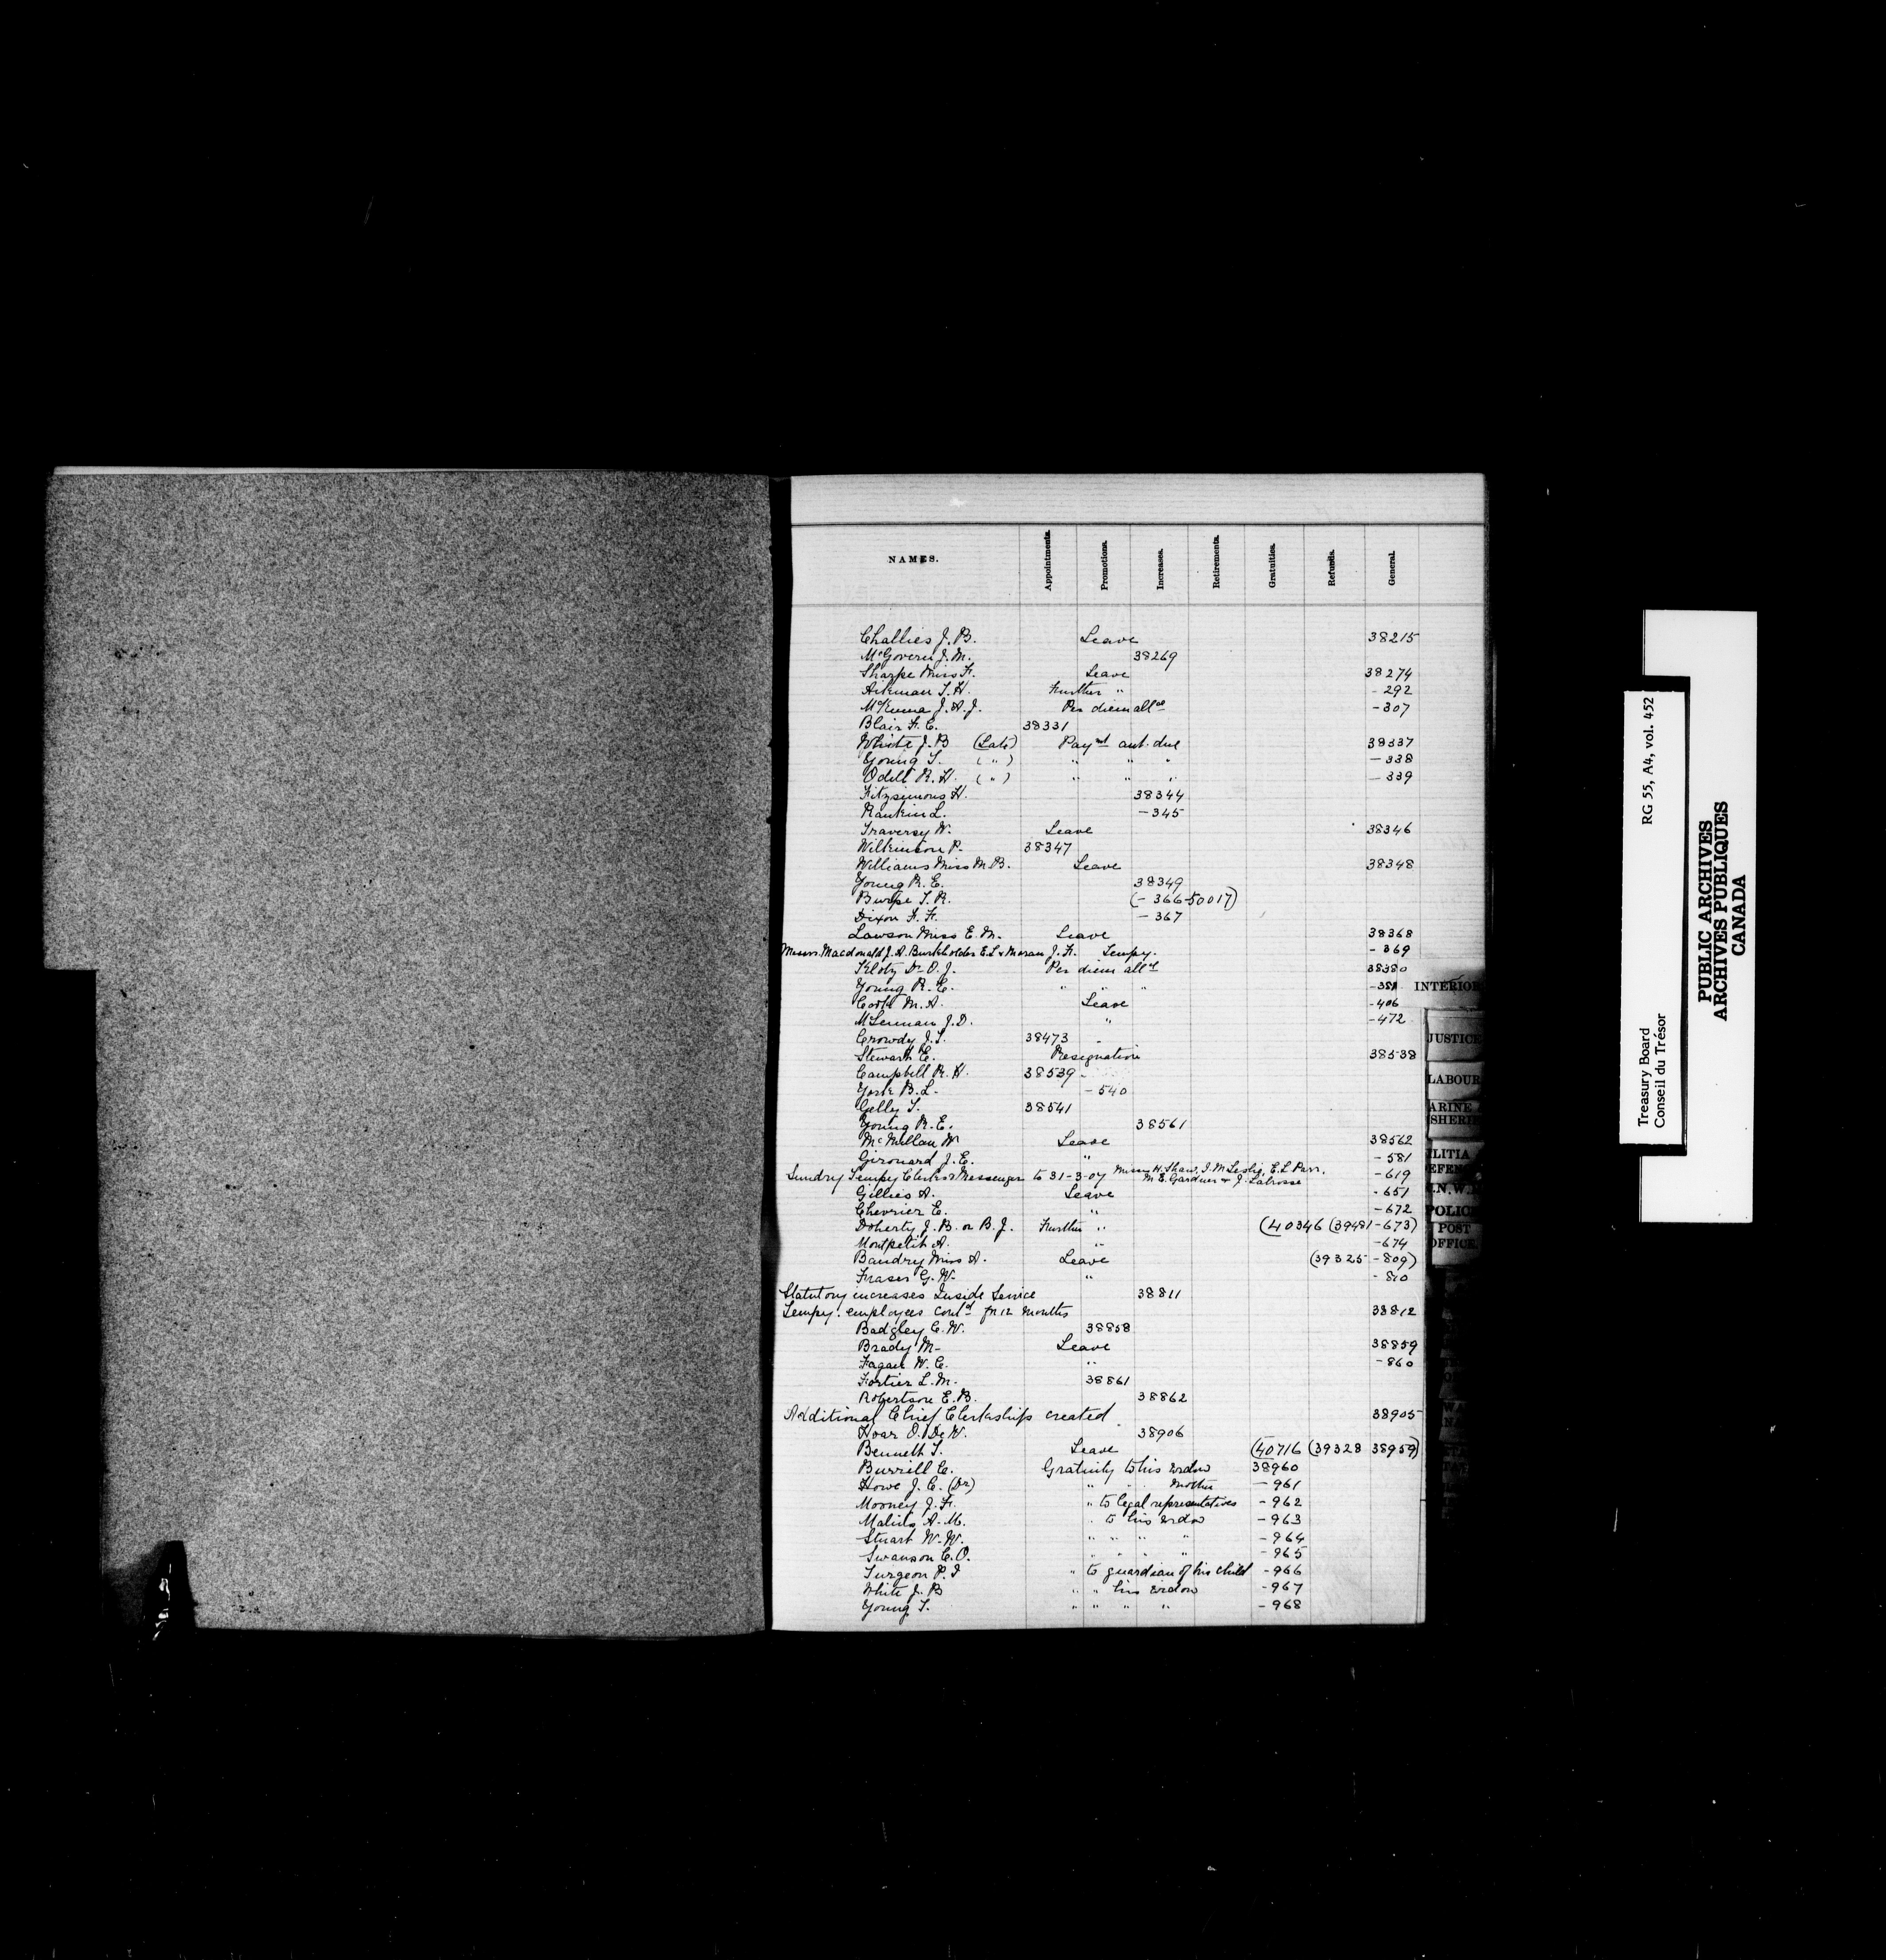 NAMES. Appointments. Promotions. Increases. Retirements. Gratuities. Refunds. General.
Challies J. B. Leave 38215
McGovern J. M. 38269
Sharpe Miss F. Leave 38274
Aikman T. H. Further " - 292
McKenna J. A. J. Per diem allce - 307
Blair F. C. 38331
White J. B (Late) Paymt amt. due 38337
Young T. ( " ) " " " - 338
Odell R. H. ( " ) " " " - 339
Fitzsimons H. 38344
Rankin L. - 345
Traversy W. Leave 38346
Wilkinson P. 38347
Williams Miss M. B. Leave 38348
Young R. E. 38349
Burpe T. R. (- 366-50017)
Dixon F. F. - 367
Lawson Miss E. M. Leave 38368
Messrs. Macdonald J. A. Burkholder E. L & Moran J. F. Tempy. - 369
Klotz Dr O. J. Per diem allce 38380
Young R. E. " " " - 381
Coté M. A. Leave - 406
McLennan J. D. " - 472
Crowdy J. T. 38473
Stewart E. Resignation 38538
Campbell R. H. 38539
York B. L. - 540
Gelly T. 38541
Young R. E. 38561
McMillan W Leave 38562
Girouard J. E. " - 581
Sundry Tempy Clerks & Messenger to 31-3-07 Messrs H. Shaw, I. M Leslie, E. L Parr, M E. Gardner & J. Labrosse - 619
Gillies A. Leave - 651
Chevrier E. " - 672
Doherty J. B. or B. J. Further " (40346 (39481 - 673)
Montpetit A. " - 674
Baudry Miss A. Leave (39325 - 809)
Fraser G. W. " - 810
Statutory increases Inside Service 38811
Tempy. employees contd for 12 months 38812
Badgley C. W. 38858
Brady M- Leave 38859
Fagan W. C. " - 860
Fortier L. M. 38861
Robertson E. B. 38862
Additional Chief Clerkships created 38905
Hoar O. De W. 38906
Bennett T. Leave (40716 (39328 38959)
Burrill C. Gratuity to his widow 38960
Howe J. C. (Dr) " " mother - 961
Mooney J. F. " to legal representatives - 962
A. M. " to his widow - 963
Stuart W. W. " " " " - 964
Swanson C. O. " " " " - 965
Turgeon P. I " to guardian of his child - 966
White J. B " " his widow - 967
Young T. " " " " - 968
INTERIOR
JUSTICE
LABOUR
ARINE
SHERI
ILITIA
EFEN
.N.W.
POLICE
POST
OFFICE
Treasury Board RG 55, A4, vol. 452
Conseil du Trésor
PUBLIC ARCHIVES
ARCHIVES PUBLIQUES
CANADA